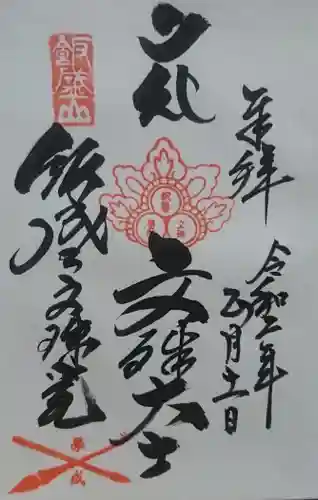 奉拝
令和二年
五月十一日
文殊大士
飯盛山文殊堂
飯盛山
学成